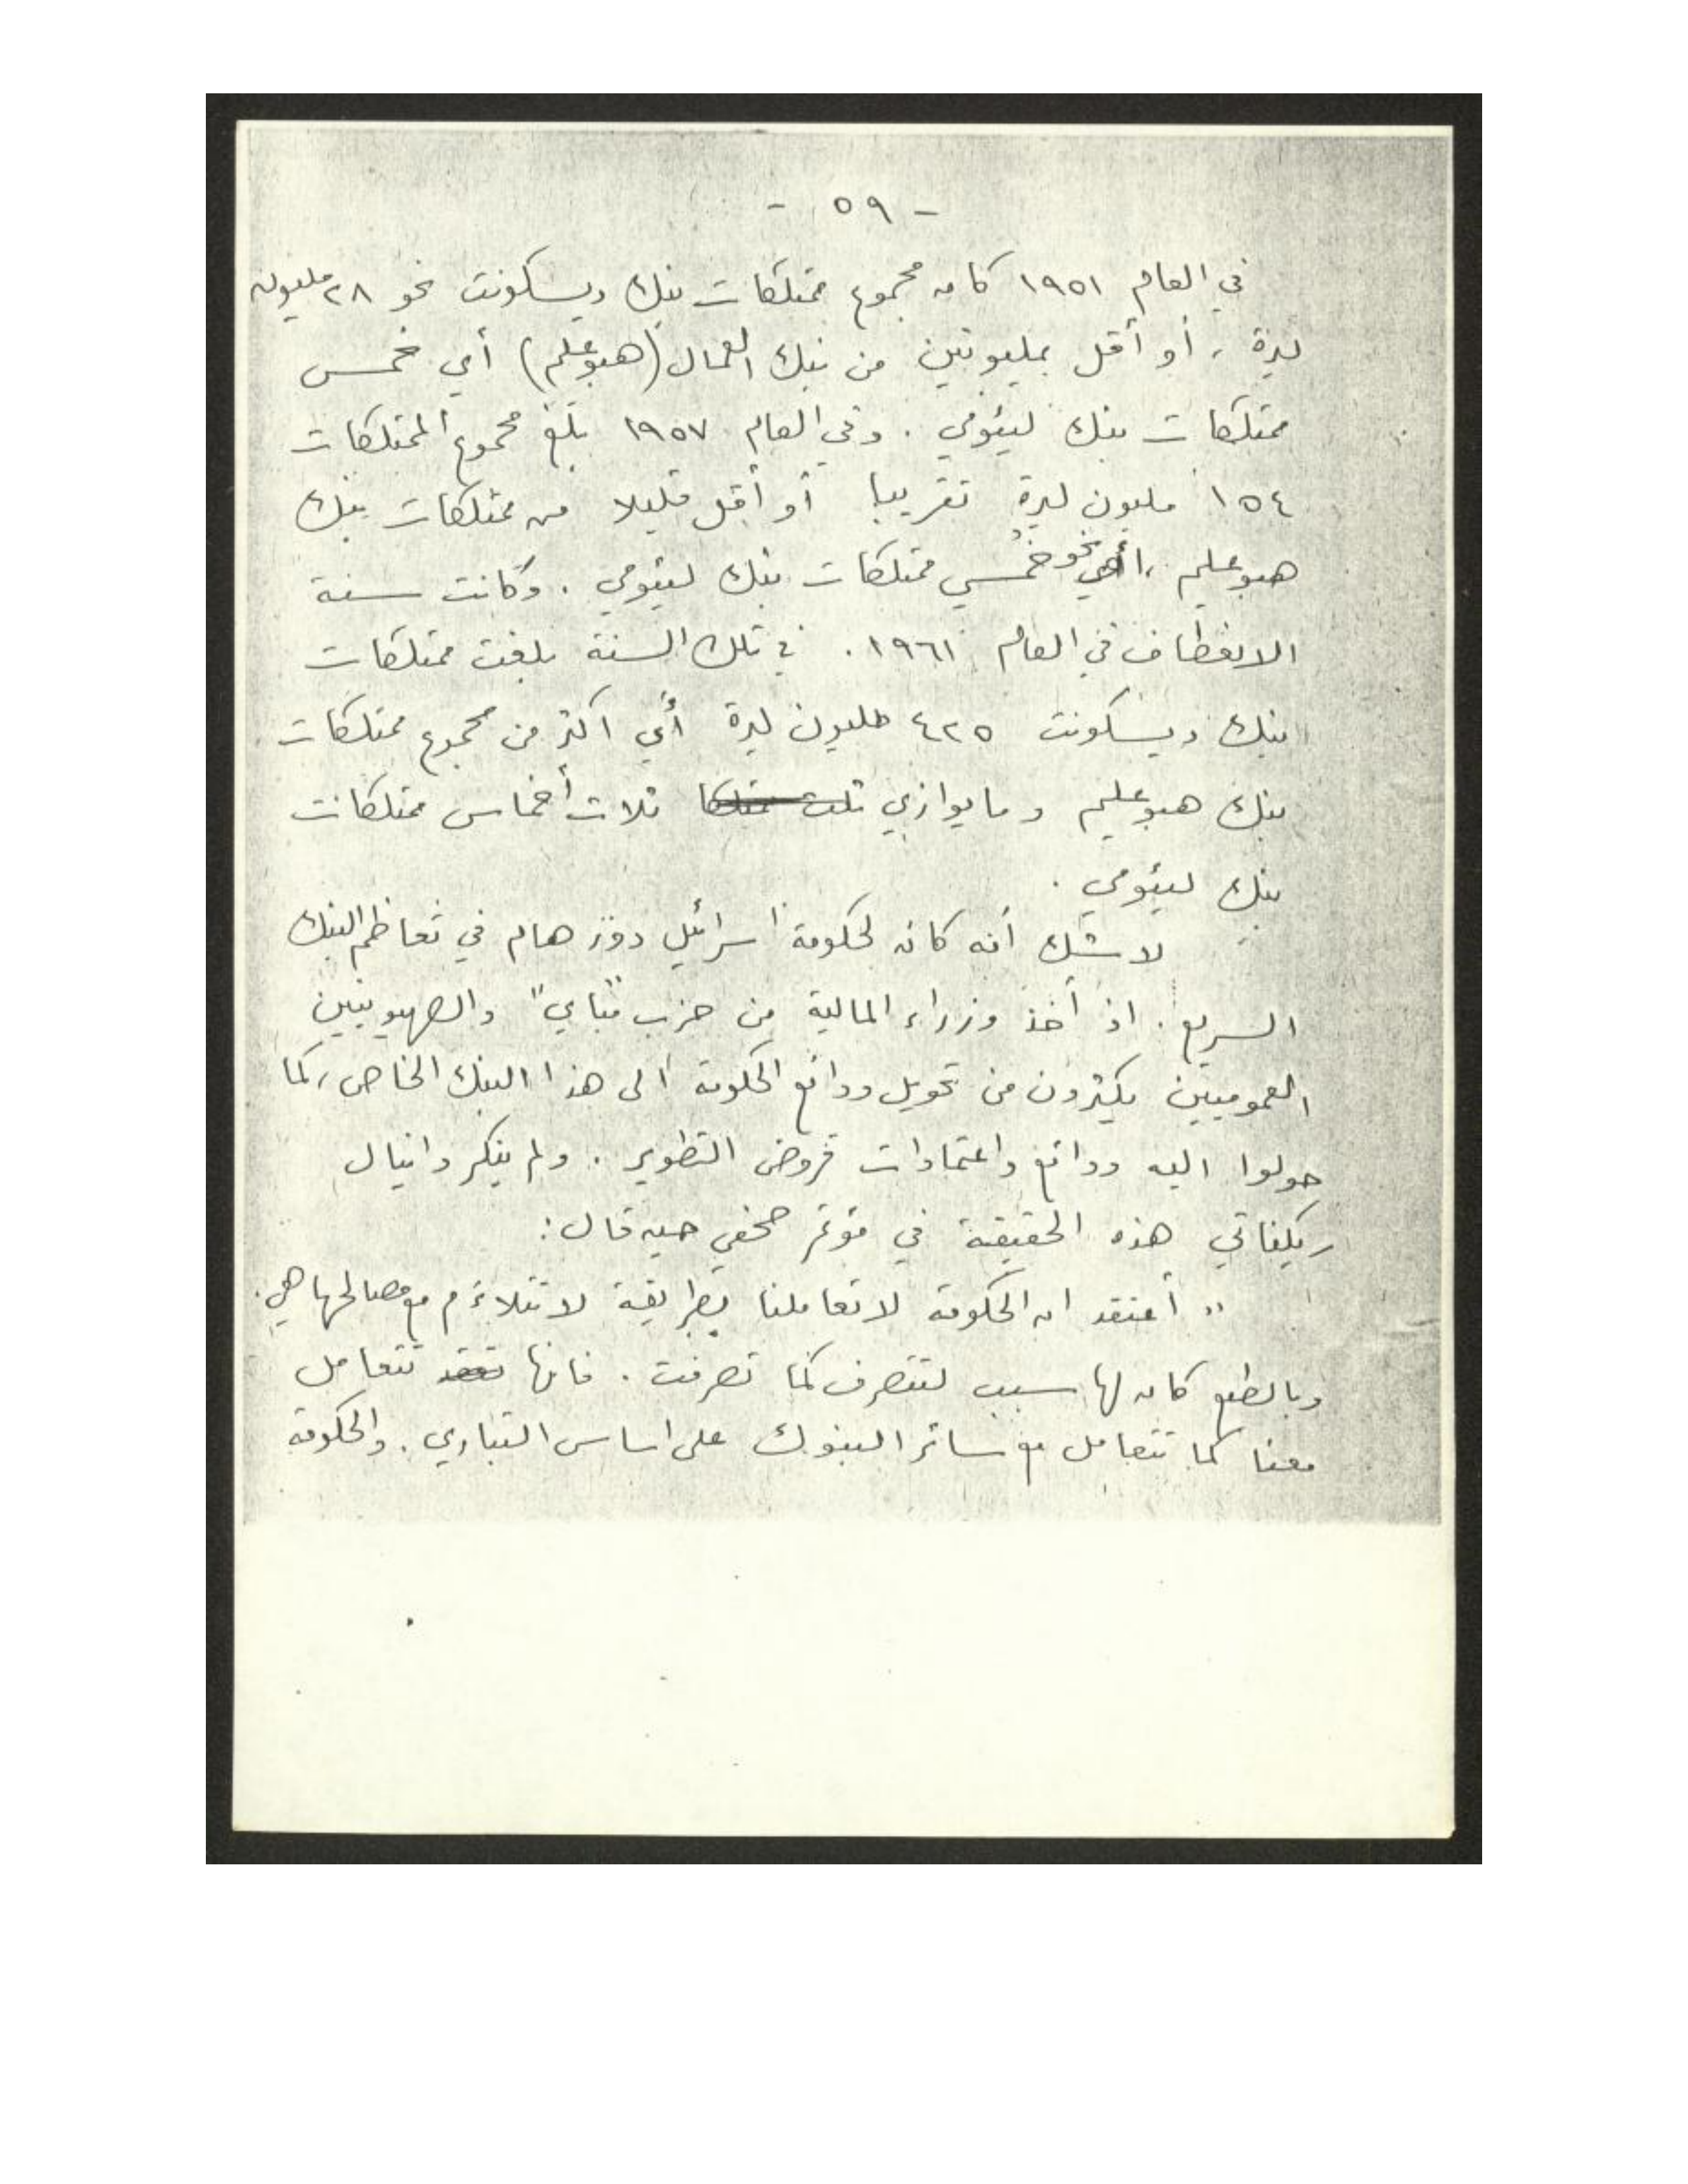 - ٥٩ -
في العام ١٩٥١ كان مجموع ممتلكات بنك ديسكونت نحو ٢٨ مليون
ليرة ، أو أقل بمليونين من بنك العمال (هبوعليم) أي خمس
ممتلكات بنك ليئومي . وفي العام ١٩٥٧ بلغ مجموع الممتلكات
١٥٤ مليون ليرة تقريبا أو أقل قليلا من ممتلكات بنك
هبوعليم ، أي نحو خُمسي ممتلكات بنك ليئومي . وكانت سنة
الانعطاف في العام ١٩٦١ . في تلك السنة بلغت ممتلكات
بنك ديسكونت ٤٢٥ مليون ليرة أي اكثر من مجموع ممتلكات
بنك هبوعليم وما يوازي ثلاث أخماس ممتلكات
بنك ليئومي .
لا شك أنه كان لحكومة اسرائيل دور هام في تعاظم البنك
السريع . اذ أخذ وزراء المالية من حزب "مباي" والصهيونيين
العموميين يكثرون من تحويل ودائع الحكومة الى هذا البنك الخاص ، كما
حولوا اليه ودائع واعتمادات قروض التطوير . ولم ينكر دانيال
ريكناتي هذه الحقيقة في مؤتمر صحفي حين قال :
" أعتقد ان الحكومة لا تعاملنا بطريقة لا تتلاءم مع مصالحها هي .
وبالطبع كان لها سبب لتتصرف كما تصرفت . فانها تتعامل
معنا كما تتعامل مع سائر البنوك على اساس التباري . والحكومة